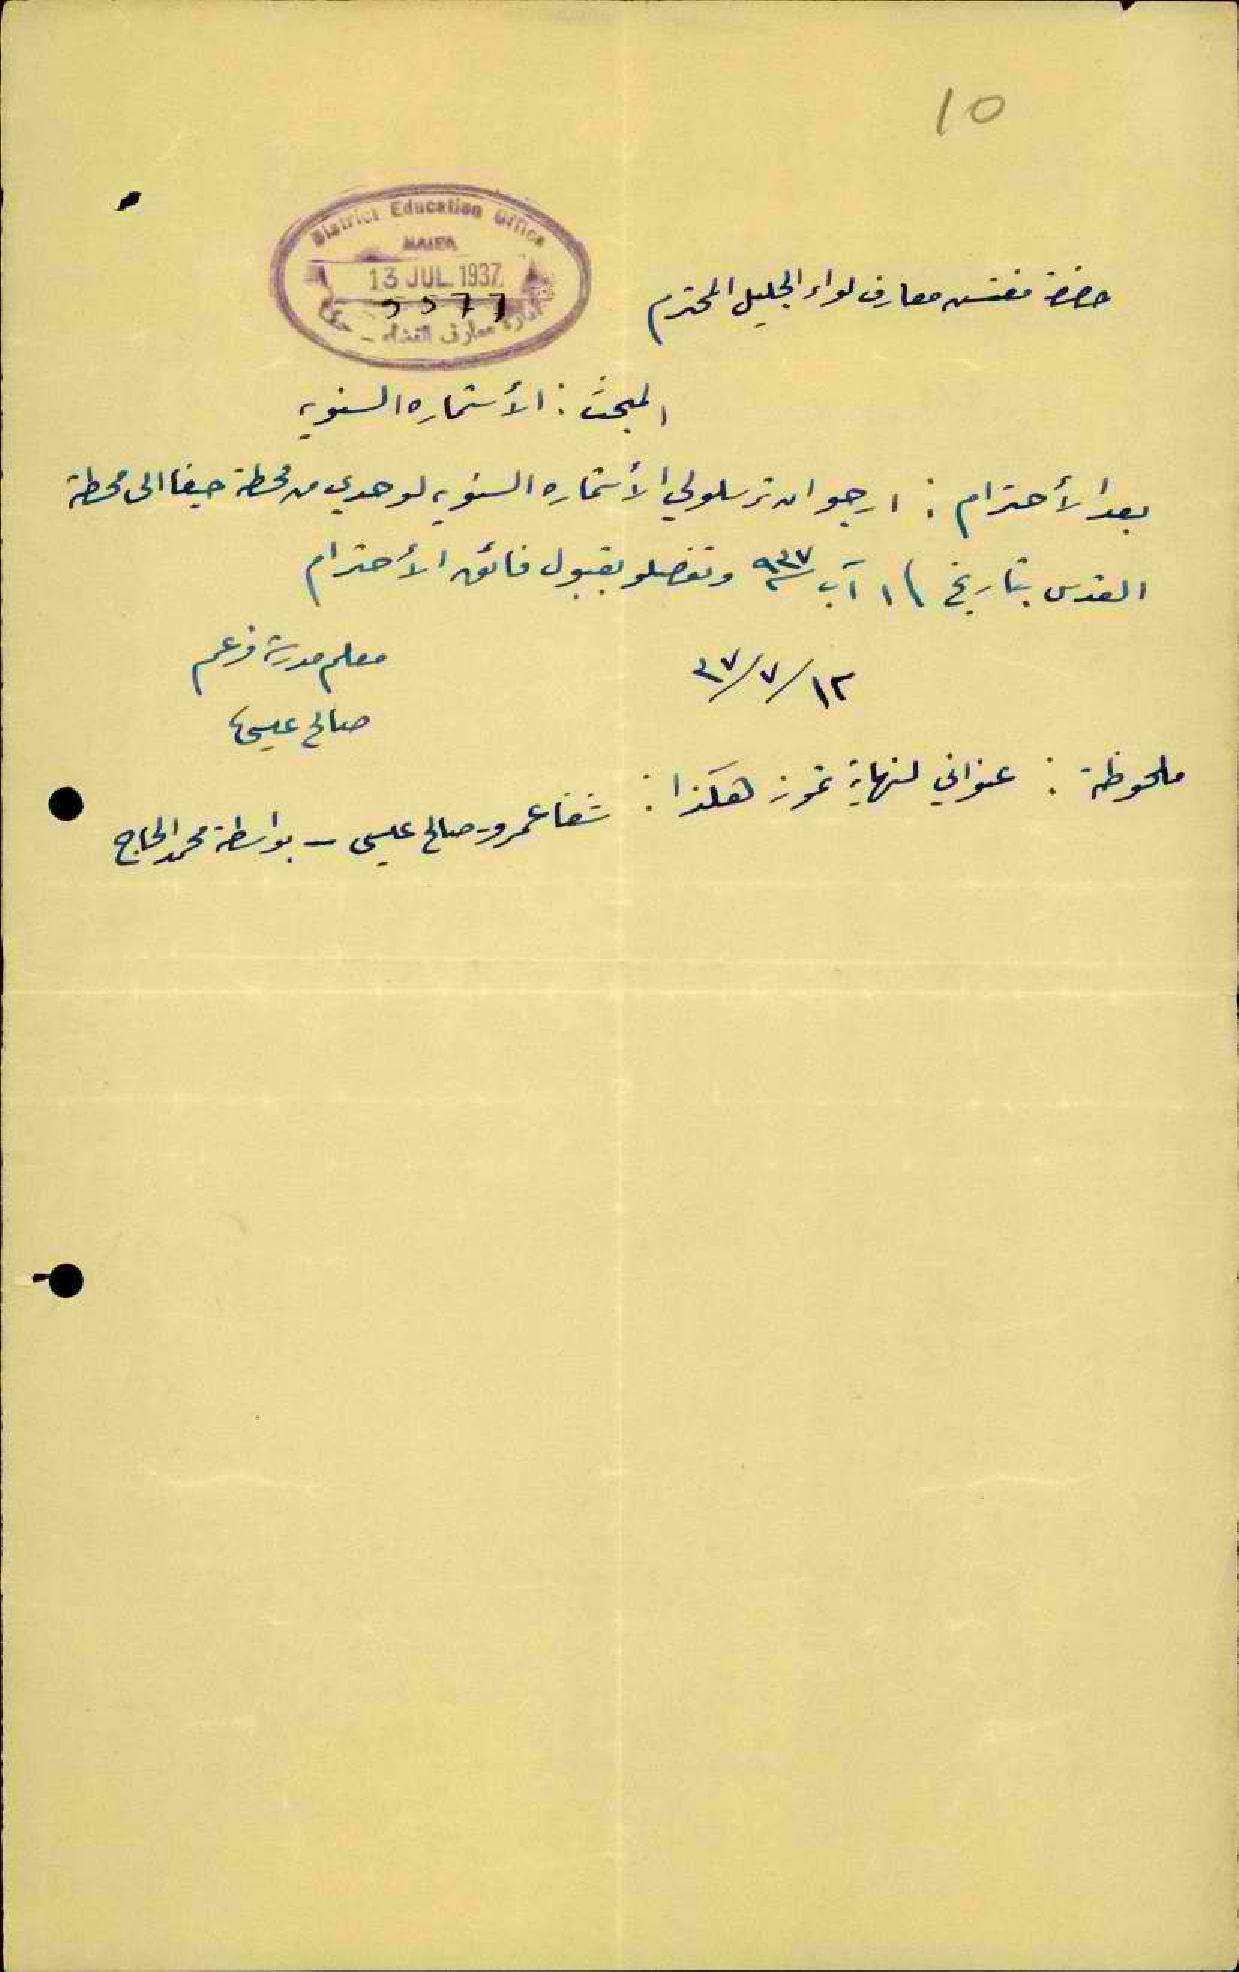 10
District Education Office
HAIFA
13 JUL 1937
ادارة معارف القضاء - حيفا
حضرة مفتش معارف لواء الجليل المحترم
المبحث : الأستماره السنويه
بعد الأحترام : ارجو ان ترسلو لي الأستماره السنويه لوحدي من محطة حيفا الى محطة
القدس بتاريخ ١ آب ٩٣٧ وتفضلو بقبول فائق الأحترام
١٢/٧/٣٧
معلم مدرسة
صالح عيسى
ملحوظة : عنواني لنهاية تموز هكذا : شفا عمرو - صالح عيسى - بواسطة محمد الحاج